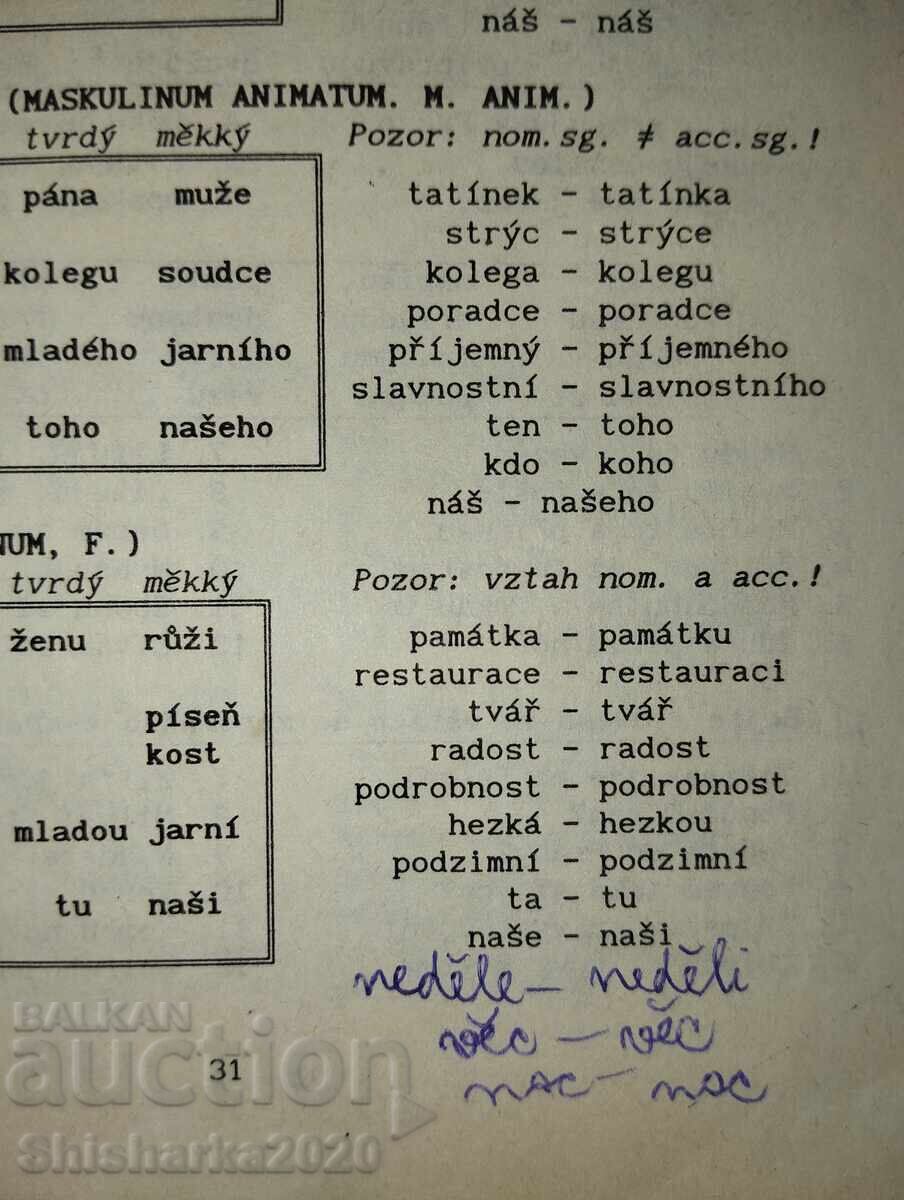 náš - náš
(MASKULINUM ANIMATUM. M. ANIM.)
tvrdý měkký
pána muže
kolegu soudce
mladého jarního
toho našeho
Pozor: nom.sg. ≠ acc.sg.!
tatínek - tatínka
strýc - strýce
kolega - kolegu
poradce - poradce
příjemný - příjemného
slavnostní - slavnostního
ten - toho
kdo - koho
náš - našeho
NUM, F.)
tvrdý měkký
ženu růži
píseň
kost
mladou jarní
tu naši
Pozor: vztah nom. a acc.!
památka - památku
restaurace - restauraci
tvář - tvář
radost - radost
podrobnost - podrobnost
hezká - hezkou
podzimní - podzimní
ta - tu
naše - naši
neděle - neděli
věc - věc
noc - noc
31
BALKAN
auction
Shisharka2020